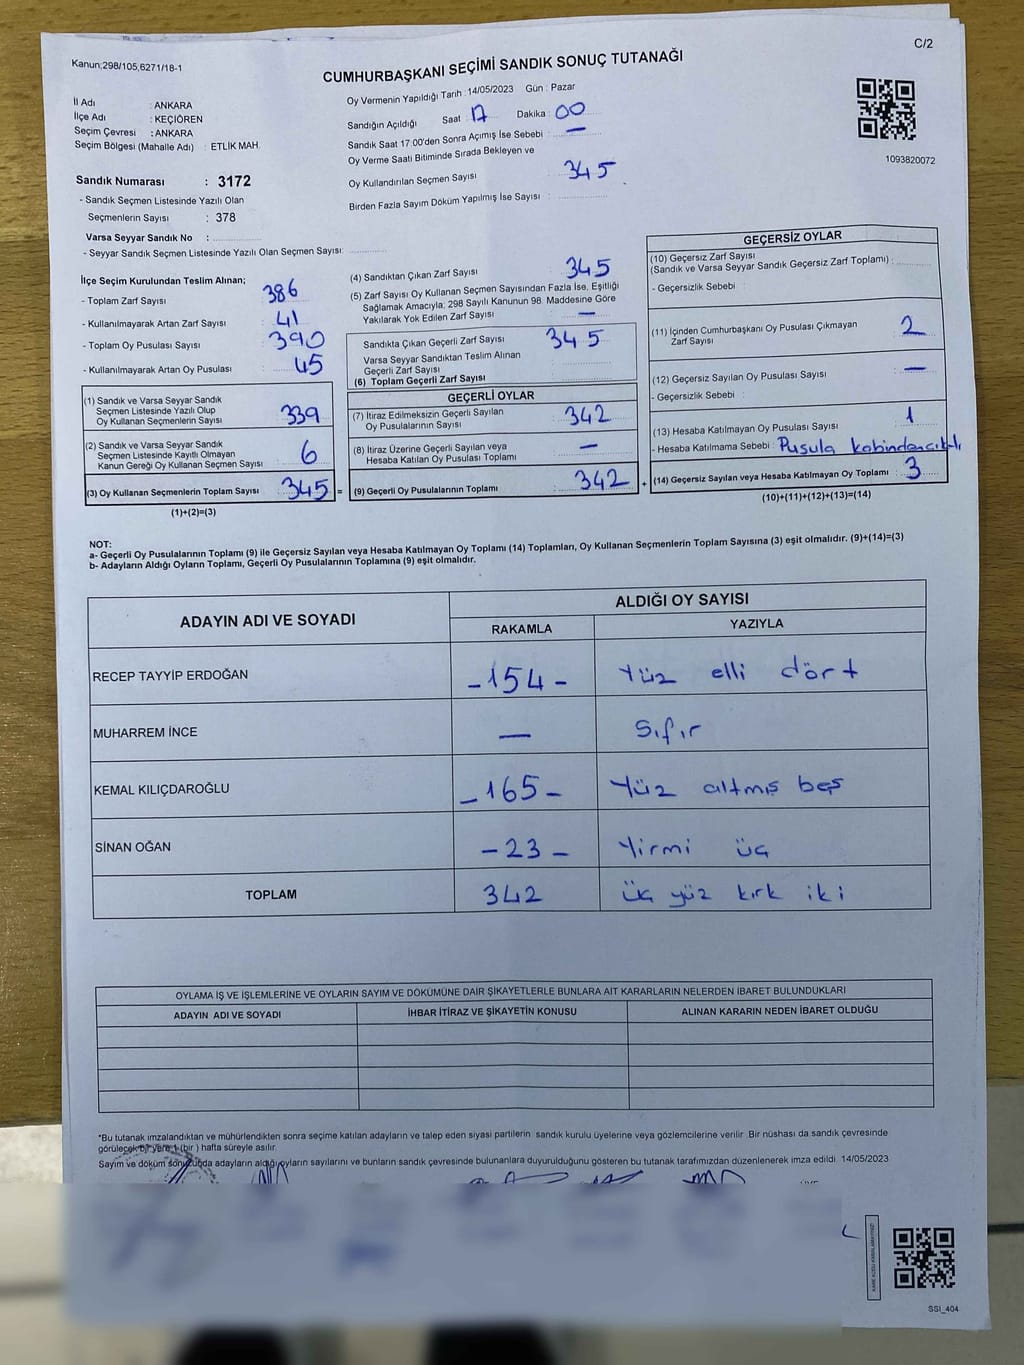 C/2
Kanun;298/105,6271/18-1
CUMHURBAŞKANI SEÇİMİ SANDIK SONUÇ TUTANAĞI
İl Adı : ANKARA
İlçe Adı : KEÇİÖREN
Seçim Çevresi : ANKARA
Seçim Bölgesi (Mahalle Adı) : ETLİK MAH.
Sandık Numarası : 3172
- Sandık Seçmen Listesinde Yazılı Olan
Seçmenlerin Sayısı : 378
Varsa Seyyar Sandık No :
- Seyyar Sandık Seçmen Listesinde Yazılı Olan Seçmen Sayısı:
Oy Vermenin Yapıldığı Tarih : 14/05/2023 Gün : Pazar
Sandığın Açıldığı Saat : 17 Dakika : 00
Sandık Saat 17:00'den Sonra Açımış İse Sebebi : —
Oy Verme Saati Bitiminde Sırada Bekleyen ve
Oy Kullandırılan Seçmen Sayısı : 345
Birden Fazla Sayım Döküm Yapılmış İse Sayısı :
1093820072
İlçe Seçim Kurulundan Teslim Alınan;
- Toplam Zarf Sayısı : 386
- Kullanılmayarak Artan Zarf Sayısı : 41
- Toplam Oy Pusulası Sayısı : 390
- Kullanılmayarak Artan Oy Pusulası : 45
(1) Sandık ve Varsa Seyyar Sandık
Seçmen Listesinde Yazılı Olup
Oy Kullanan Seçmenlerin Sayısı : 339
(2) Sandık ve Varsa Seyyar Sandık
Seçmen Listesinde Kayıtlı Olmayan
Kanun Gereği Oy Kullanan Seçmen Sayısı : 6
(3) Oy Kullanan Seçmenlerin Toplam Sayısı : 345 =
(1)+(2)=(3)
(4) Sandıktan Çıkan Zarf Sayısı : 345
(5) Zarf Sayısı Oy Kullanan Seçmen Sayısından Fazla İse, Eşitliği
Sağlamak Amacıyla; 298 Sayılı Kanunun 98. Maddesine Göre
Yakılarak Yok Edilen Zarf Sayısı : —
Sandıkta Çıkan Geçerli Zarf Sayısı : 345
Varsa Seyyar Sandıktan Teslim Alınan
Geçerli Zarf Sayısı :
(6) Toplam Geçerli Zarf Sayısı :
GEÇERLİ OYLAR
(7) İtiraz Edilmeksizin Geçerli Sayılan
Oy Pusulalarının Sayısı : 342
(8) İtiraz Üzerine Geçerli Sayılan veya
Hesaba Katılan Oy Pusulası Toplamı : —
(9) Geçerli Oy Pusulalarının Toplamı : 342 +
GEÇERSİZ OYLAR
(10) Geçersiz Zarf Sayısı
(Sandık ve Varsa Seyyar Sandık Geçersiz Zarf Toplamı) :
- Geçersizlik Sebebi :
(11) İçinden Cumhurbaşkanı Oy Pusulası Çıkmayan
Zarf Sayısı : 2
(12) Geçersiz Sayılan Oy Pusulası Sayısı : —
- Geçersizlik Sebebi :
(13) Hesaba Katılmayan Oy Pusulası Sayısı : 1
- Hesaba Katılmama Sebebi : Pusula kabinden çıktı
(14) Geçersiz Sayılan veya Hesaba Katılmayan Oy Toplamı : 3
(10)+(11)+(12)+(13)=(14)
NOT:
a- Geçerli Oy Pusulalarının Toplamı (9) ile Geçersiz Sayılan veya Hesaba Katılmayan Oy Toplamı (14) Toplamları, Oy Kullanan Seçmenlerin Toplam Sayısına (3) eşit olmalıdır. (9)+(14)=(3)
b- Adayların Aldığı Oyların Toplamı, Geçerli Oy Pusulalarının Toplamına (9) eşit olmalıdır.
ADAYIN ADI VE SOYADI ALDIĞI OY SAYISI
RAKAMLA YAZIYLA
RECEP TAYYİP ERDOĞAN -154- Yüz elli dört
MUHARREM İNCE — Sıfır
KEMAL KILIÇDAROĞLU -165- Yüz altmış beş
SİNAN OĞAN -23- Yirmi üç
TOPLAM 342 üç yüz kırk iki
OYLAMA İŞ VE İŞLEMLERİNE VE OYLARIN SAYIM VE DÖKÜMÜNE DAİR ŞİKAYETLERLE BUNLARA AİT KARARLARIN NELERDEN İBARET BULUNDUKLARI
ADAYIN ADI VE SOYADI İHBAR İTİRAZ VE ŞİKAYETİN KONUSU ALINAN KARARIN NEDEN İBARET OLDUĞU
*Bu tutanak imzalandıktan ve mühürlendikten sonra seçime katılan adayların ve talep eden siyasi partilerin sandık kurulu üyelerine veya gözlemcilerine verilir. Bir nüshası da sandık çevresinde
görülecek bir yere 1 (bir) hafta süreyle asılır.
Sayım ve döküm sonucunda adayların aldığı oyların sayılarını ve bunların sandık çevresinde bulunanlara duyurulduğunu gösteren bu tutanak tarafımızdan düzenlenerek imza edildi. 14/05/2023
SSI_404